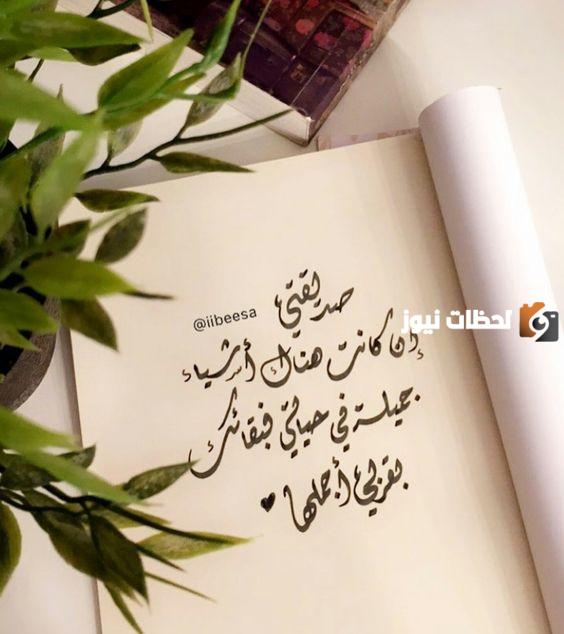 صديقتي
@iibeesa
لحظات نيوز
إن كانت هناك أشياء
جميلة في حياتي فبقائك
بقربي أجملها